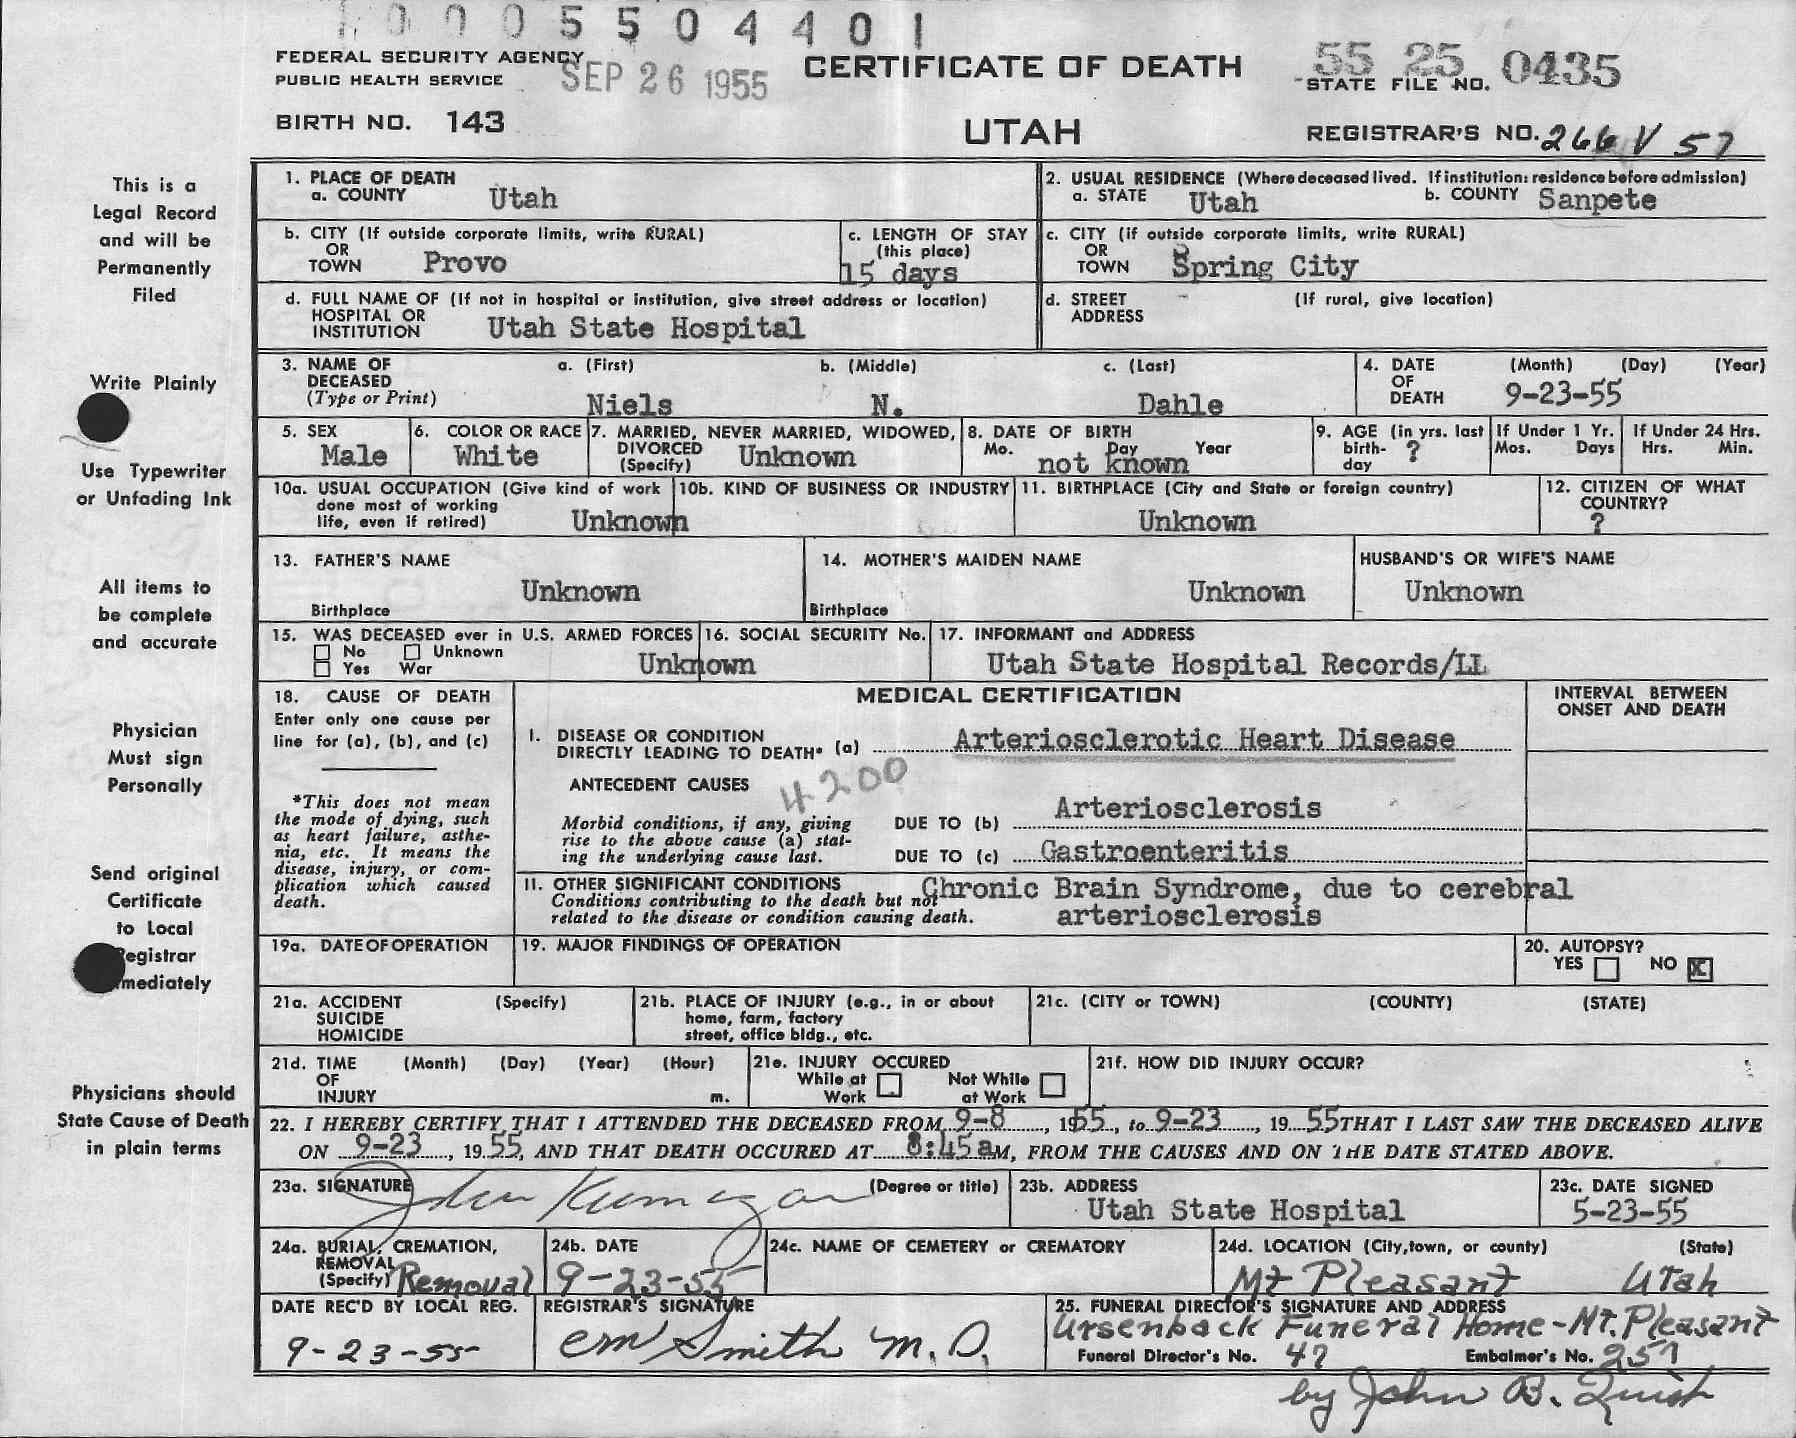 10005504401
FEDERAL SECURITY AGENCY
PUBLIC HEALTH SERVICE
SEP 26 1955
CERTIFICATE OF DEATH
55 25 0435
STATE FILE NO.
BIRTH NO. 143
UTAH
REGISTRAR'S NO. 266 V 57
This is a
Legal Record
and will be
Permanently
Filed
Write Plainly
Use Typewriter
or Unfading Ink
All items to
be complete
and accurate
Physician
Must sign
Personally
Send original
Certificate
to Local
Registrar
mmediately
Physicians should
State Cause of Death
in plain terms
1. PLACE OF DEATH
a. COUNTY Utah
2. USUAL RESIDENCE (Where deceased lived. If institution: residence before admission)
a. STATE Utah b. COUNTY Sanpete
b. CITY (If outside corporate limits, write RURAL)
OR
TOWN Provo
c. LENGTH OF STAY
(this place)
15 days
c. CITY (if outside corporate limits, write RURAL)
OR
TOWN Spring City
d. FULL NAME OF (If not in hospital or institution, give street address or location)
HOSPITAL OR
INSTITUTION Utah State Hospital
d. STREET (If rural, give location)
ADDRESS
3. NAME OF a. (First) b. (Middle) c. (Last)
DECEASED
(Type or Print) Niels N. Dahle
4. DATE (Month) (Day) (Year)
OF
DEATH 9-23-55
5. SEX
Male
6. COLOR OR RACE
White
7. MARRIED, NEVER MARRIED, WIDOWED,
DIVORCED
(Specify) Unknown
8. DATE OF BIRTH
Mo. Day Year
not known
9. AGE (in yrs. last
birth-
day ?
If Under 1 Yr.
Mos. Days
If Under 24 Hrs.
Hrs. Min.
10a. USUAL OCCUPATION (Give kind of work
done most of working
life, even if retired) Unknown
10b. KIND OF BUSINESS OR INDUSTRY
11. BIRTHPLACE (City and State or foreign country)
Unknown
12. CITIZEN OF WHAT
COUNTRY?
?
13. FATHER'S NAME
Unknown
Birthplace
14. MOTHER'S MAIDEN NAME
Unknown
Birthplace
HUSBAND'S OR WIFE'S NAME
Unknown
15. WAS DECEASED ever in U.S. ARMED FORCES
No Unknown
Yes War
16. SOCIAL SECURITY No.
Unknown
17. INFORMANT and ADDRESS
Utah State Hospital Records/LL
18. CAUSE OF DEATH
Enter only one cause per
line for (a), (b), and (c)
*This does not mean
the mode of dying, such
as heart failure, asthe-
nia, etc. It means the
disease, injury, or com-
plication which caused
death.
MEDICAL CERTIFICATION
INTERVAL BETWEEN
ONSET AND DEATH
I. DISEASE OR CONDITION
DIRECTLY LEADING TO DEATH* (a) Arteriosclerotic Heart Disease
ANTECEDENT CAUSES 4200
Morbid conditions, if any, giving
rise to the above cause (a) stat-
ing the underlying cause last.
DUE TO (b) Arteriosclerosis
DUE TO (c) Gastroenteritis
II. OTHER SIGNIFICANT CONDITIONS
Conditions contributing to the death but not
related to the disease or condition causing death.
Chronic Brain Syndrome, due to cerebral
arteriosclerosis
19a. DATE OF OPERATION
19. MAJOR FINDINGS OF OPERATION
20. AUTOPSY?
YES NO X
21a. ACCIDENT (Specify)
SUICIDE
HOMICIDE
21b. PLACE OF INJURY (e.g., in or about
home, farm, factory
street, office bldg., etc.
21c. (CITY or TOWN) (COUNTY) (STATE)
21d. TIME (Month) (Day) (Year) (Hour)
OF
INJURY m.
21e. INJURY OCCURED
While at Work Not While at Work
21f. HOW DID INJURY OCCUR?
22. I HEREBY CERTIFY THAT I ATTENDED THE DECEASED FROM 9-8, 1955, to 9-23, 19 55 THAT I LAST SAW THE DECEASED ALIVE
ON 9-23, 19 55, AND THAT DEATH OCCURED AT 8:45 aM, FROM THE CAUSES AND ON THE DATE STATED ABOVE.
23a. SIGNATURE (Degree or title)
John
23b. ADDRESS
Utah State Hospital
23c. DATE SIGNED
5-23-55
24a. BURIAL, CREMATION,
REMOVAL
(Specify) Removal
24b. DATE
9-23-55
24c. NAME OF CEMETERY or CREMATORY
24d. LOCATION (City, town, or county) (State)
Mt Pleasant Utah
DATE REC'D BY LOCAL REG.
9-23-55
REGISTRAR'S SIGNATURE
em Smith M.D.
25. FUNERAL DIRECTOR'S SIGNATURE AND ADDRESS
Ursenback Funeral Home - Mt. Pleasant
Funeral Director's No. 47 Embalmer's No. 257
by John B.